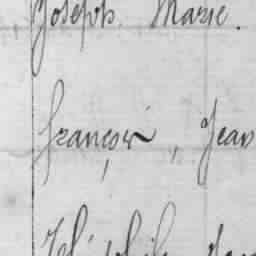 Joseph Marie.
françois, Jean
Théophile